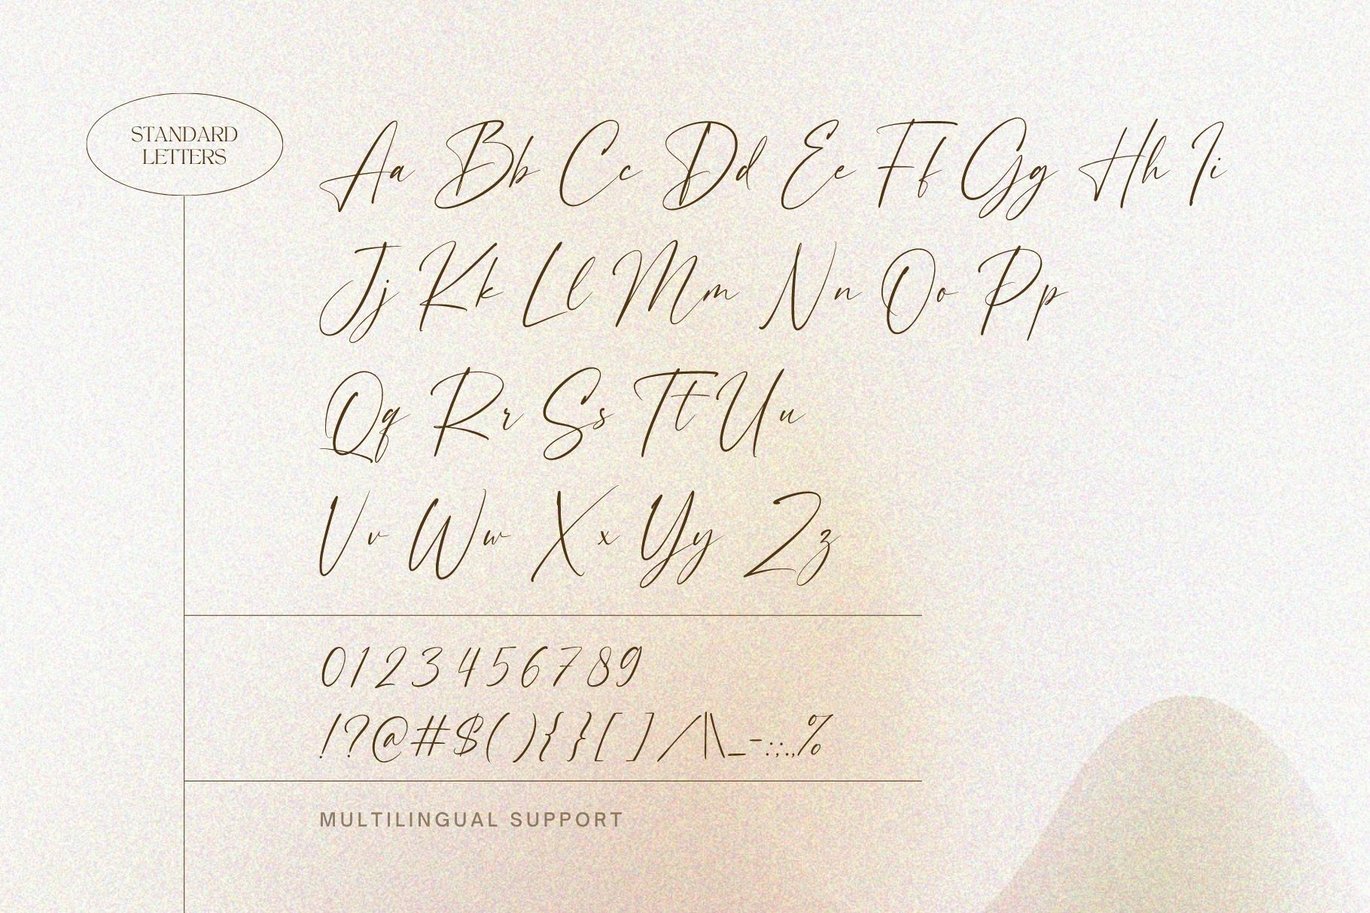 STANDARD
LETTERS
Aa Bb Cc Dd Ee Ff Gg Hh Ii
Jj Kk Ll Mm Nn Oo Pp
Qq Rr Ss Tt Uu
Vv Ww Xx Yy Zz
0123456789
!?@#$(){}[]/|\_-:;.,%
MULTILINGUAL SUPPORT